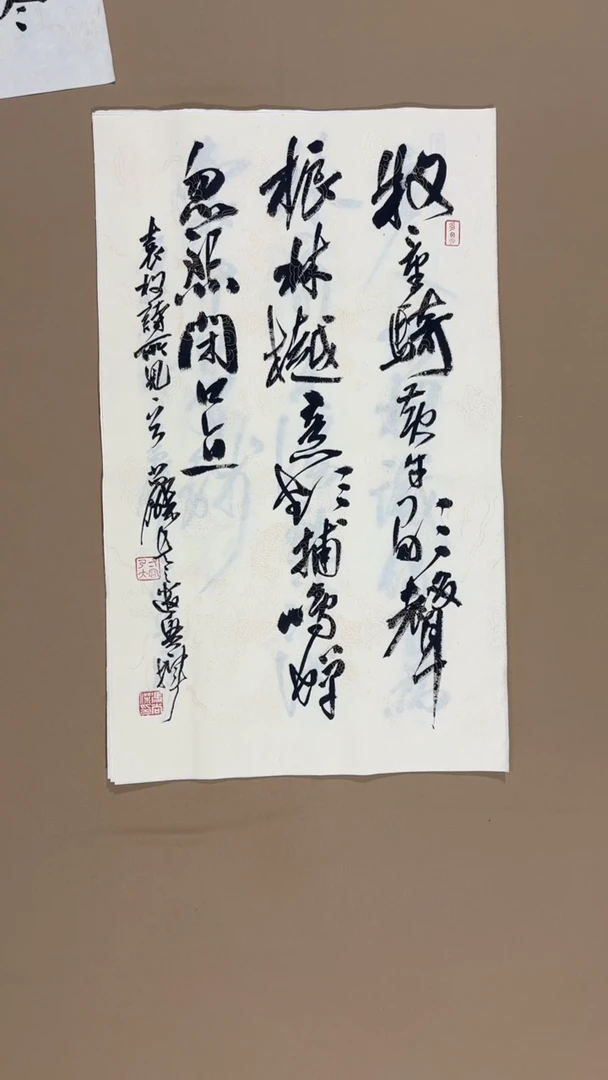 牧童騎黄牛歌聲
振林樾意欲捕鳴蟬
忽然閉口立
袁枚詩所見